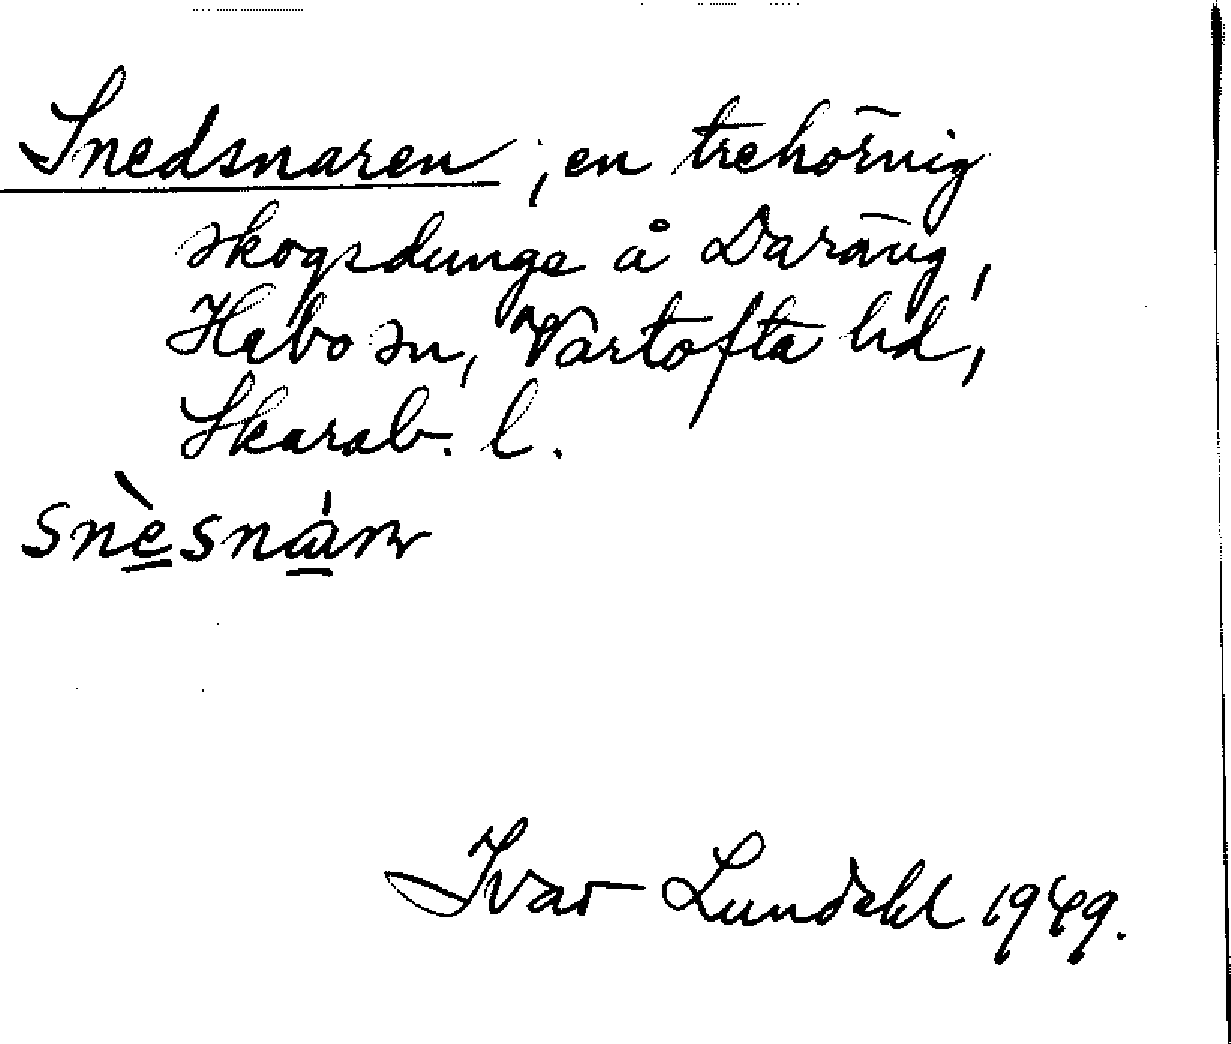 Snedsnaren, en trehörnig
skogsdunge å Daräng,
Habo sn, Vartofta hd,
Skarab. l.
snèsnàrn
Ivar Lundahl 1949.